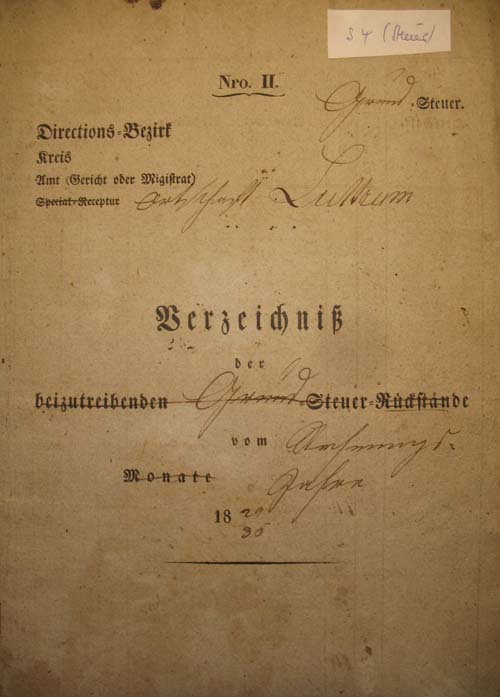 34 (Steuer)
Nro. II.
Grund-Steuer.
Directions-Bezirk
Kreis
Amt (Gericht oder Migistrat)
Special-Receptur Ortschaft Luttrum
Verzeichniß
der
beizutreibenden Grund-Steuer-Rückstände
vom Rechnungs-
Monate Jahre
18 29
30